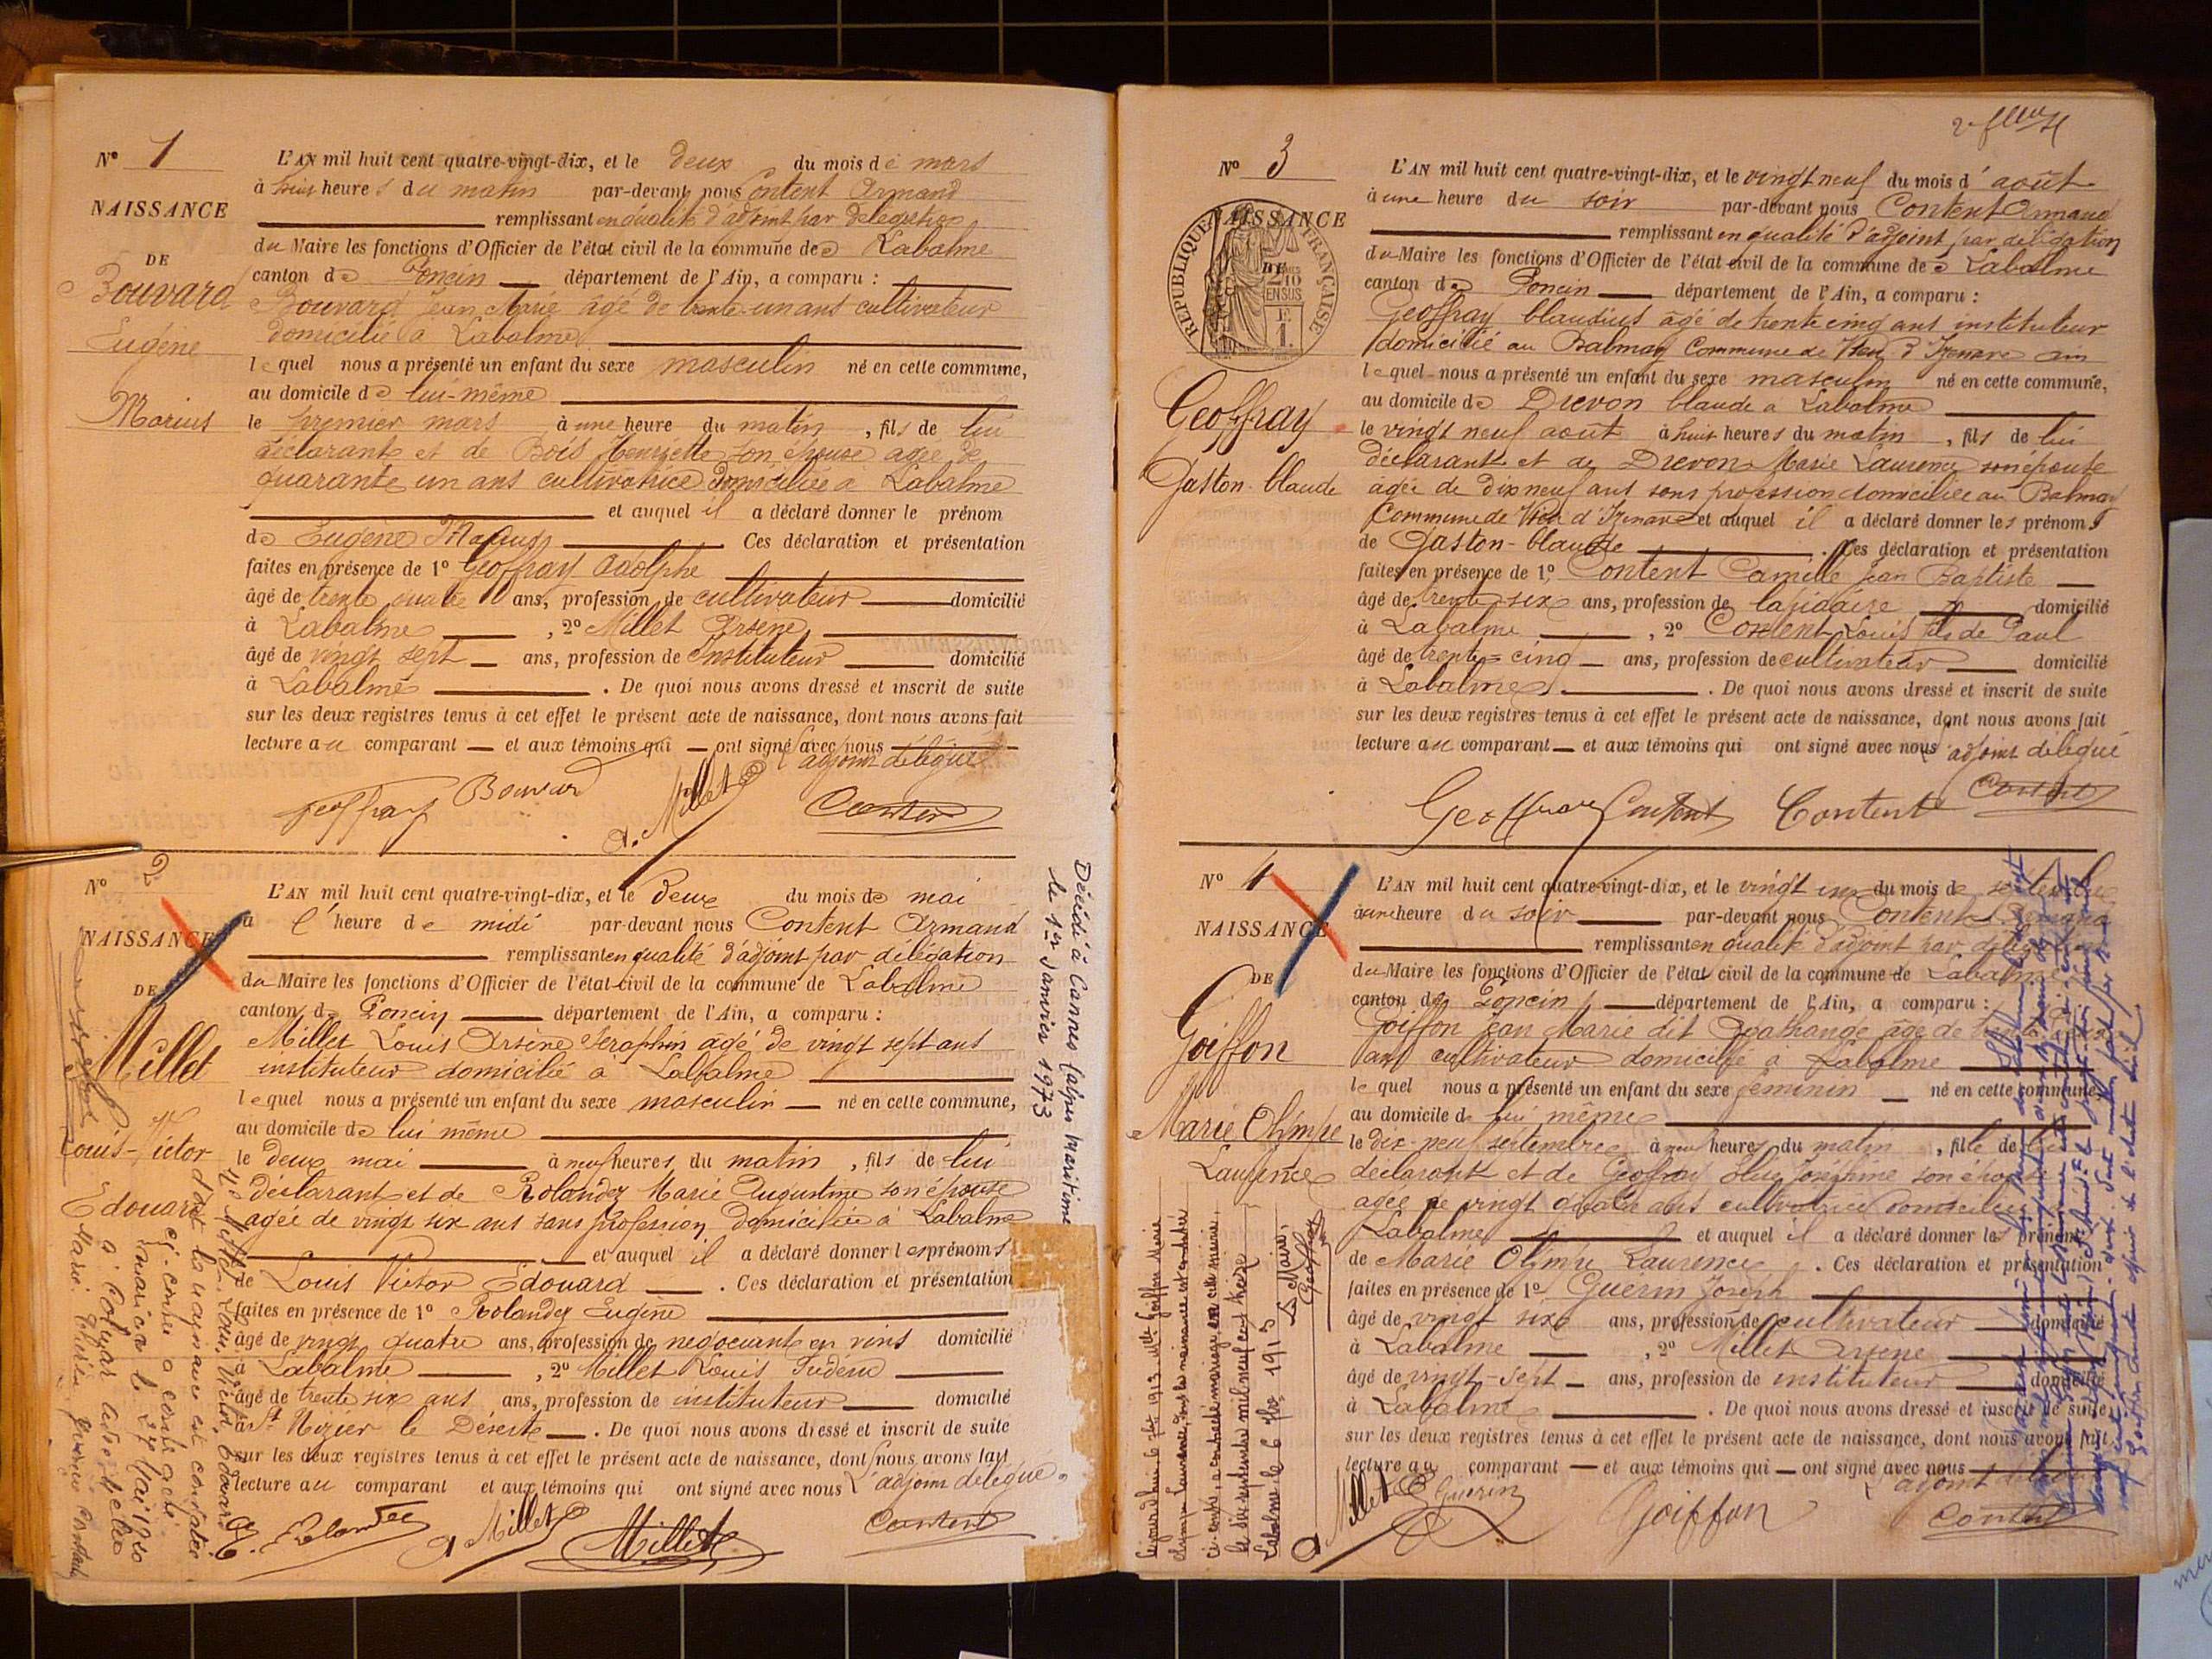 Nº 1
NAISSANCE
DE
Bouvard
Eugène
Marius
L'AN mil huit cent quatre-vingt-dix, et le deux du mois de mars
à huit heures du matin par-devant nous Content Armand
remplissant en qualité d'adjoint par délégation
du Maire les fonctions d'Officier de l'état civil de la commune de Labalme
canton de Poncin département de l'Ain, a comparu :
Bouvard Jean Marie âgé de trente un ans cultivateur
domicilié à Labalme
lequel nous a présenté un enfant du sexe masculin né en cette commune,
au domicile de lui-même
le premier mars à une heure du matin, fils de lui
déclarant et de Bois Henriette son épouse agée de
quarante un ans cultivatrice domiciliée à Labalme
et auquel il a déclaré donner le prénom
de Eugène Marius Ces déclaration et présentation
faites en présence de 1º Geoffray Adolphe
âgé de trente quatre ans, profession de cultivateur domicilié
à Labalme, 2º Millet Arsene
âgé de vingt sept ans, profession de Instituteur domicilié
à Labalme. De quoi nous avons dressé et inscrit de suite
sur les deux registres tenus à cet effet le présent acte de naissance, dont nous avons fait
lecture au comparant et aux témoins qui ont signé avec nous
l'adjoint délégué
Geoffray Bouvard A. Millet Content
Nº 2
NAISSANCE
DE
Millet
Louis-Victor
Edouard
L'AN mil huit cent quatre-vingt-dix, et le Deux du mois de mai
à l'heure de midi par-devant nous Content Armand
remplissant en qualité d'adjoint par délégation
du Maire les fonctions d'Officier de l'état civil de la commune de Labalme
canton de Poncin département de l'Ain, a comparu :
Millet Louis Arsène Séraphin agé de vingt sept ans
instituteur domicilié à Labalme
lequel nous a présenté un enfant du sexe masculin né en cette commune,
au domicile de lui même
le deux mai à neuf heures du matin, fils de lui
déclarant et de Rolandez Marie Augustine son épouse
agée de vingt six ans sans profession domiciliée à Labalme
et auquel il a déclaré donner les prénoms
de Louis Victor Edouard. Ces déclaration et présentation
faites en présence de 1º Rolandez Eugène
âgé de vingt quatre ans, profession de negociant en vins domicilié
à Labalme, 2º Millet Louis
âgé de trente six ans ans, profession de instituteur domicilié
à St Nizier le Désert. De quoi nous avons dressé et inscrit de suite
sur les deux registres tenus à cet effet le présent acte de naissance, dont nous avons fait
lecture au comparant et aux témoins qui ont signé avec nous l'adjoint délégué
E. Rolandez A Millet Millet Content
Décédé à Cannes (alpes maritimes
le 1er Janvier 1973
Mr Millet Louis Victor Edouard
dont la naissance est constatée
ci-contre a contracté
mariage le 27 Mai 1920
Nº 3
NAISSANCE
DE
RÉPUBLIQUE FRANÇAISE
Geoffray
Gaston-Claude
L'AN mil huit cent quatre-vingt-dix, et le vingt neuf du mois d'août
à une heure du soir par-devant nous Content Armand
remplissant en qualité d'adjoint par délégation
du Maire les fonctions d'Officier de l'état civil de la commune de Labalme
canton de Poncin département de l'Ain, a comparu :
Geoffray Claudius âgé de trente cinq ans instituteur
domicilié au Balmay Commune de Vieu d'Izenave ain
lequel nous a présenté un enfant du sexe masculin né en cette commune,
au domicile de Drevon Claude à Labalme
le vingt neuf août à huit heures du matin, fils de lui
déclarant et de Drevon Marie Laurence son épouse
âgée de dix neuf ans sans profession domiciliée au Balmay
Commune de Vieu d'Izenave et auquel il a déclaré donner les prénoms
de Gaston-Claude. Ces déclaration et présentation
faites en présence de 1º Content Camille Jean Baptiste
âgé de trente-six ans, profession de lapidaire domicilié
à Labalme, 2º Content Louis fils de Paul
âgé de trente-cinq ans, profession de cultivateur domicilié
à Labalme. De quoi nous avons dressé et inscrit de suite
sur les deux registres tenus à cet effet le présent acte de naissance, dont nous avons fait
lecture au comparant et aux témoins qui ont signé avec nous l'adjoint délégué
Geoffray Content Content Content
Nº 4
NAISSANCE
DE
Goiffon
Marie Olympe
Laurence
L'AN mil huit cent quatre-vingt-dix, et le vingt un du mois de septembre
à une heure du soir par-devant nous Content Armand
remplissant en qualité d'adjoint par délégation
du Maire les fonctions d'Officier de l'état civil de la commune de Labalme
canton de Poncin département de l'Ain, a comparu :
Goiffon Jean Marie dit âgé de
ans cultivateur domicilié à Labalme
lequel nous a présenté un enfant du sexe féminin né en cette commune,
au domicile de lui même
le dix-neuf septembre à heures du matin, fille de lui
déclarant et de Geoffray Joséphine son épouse
agée de vingt quatre ans cultivatrice domiciliée
Labalme et auquel il a déclaré donner les prénoms
de Marie Olympe Laurence. Ces déclaration et présentation
faites en présence de 1º Guérin Joseph
âgé de vingt six ans, profession de cultivateur domicilié
à Labalme, 2º Millet Arsene
âgé de vingt-sept ans, profession de instituteur domicilié
à Labalme. De quoi nous avons dressé et inscrit de suite
sur les deux registres tenus à cet effet le présent acte de naissance, dont nous avons fait
lecture au comparant et aux témoins qui ont signé avec nous
l'adjoint
A Millet Guerin Goiffon Content
Labalme le 6 1913
Le Maire,
Geoffray